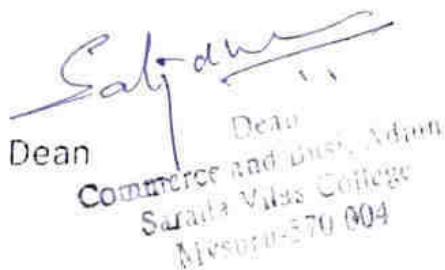 Dean
Dean
Commerce and Busi. Admn
Sarada Vilas College
Mysuru-570 004